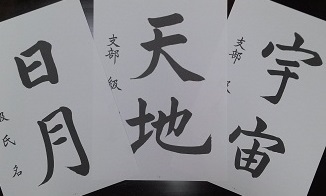 宇宙
支部 級
天地
支部 級
日月
級 氏名